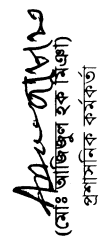 (মোঃ আজিজুল হক মিঞা)
প্রশাসনিক কর্মকর্তা